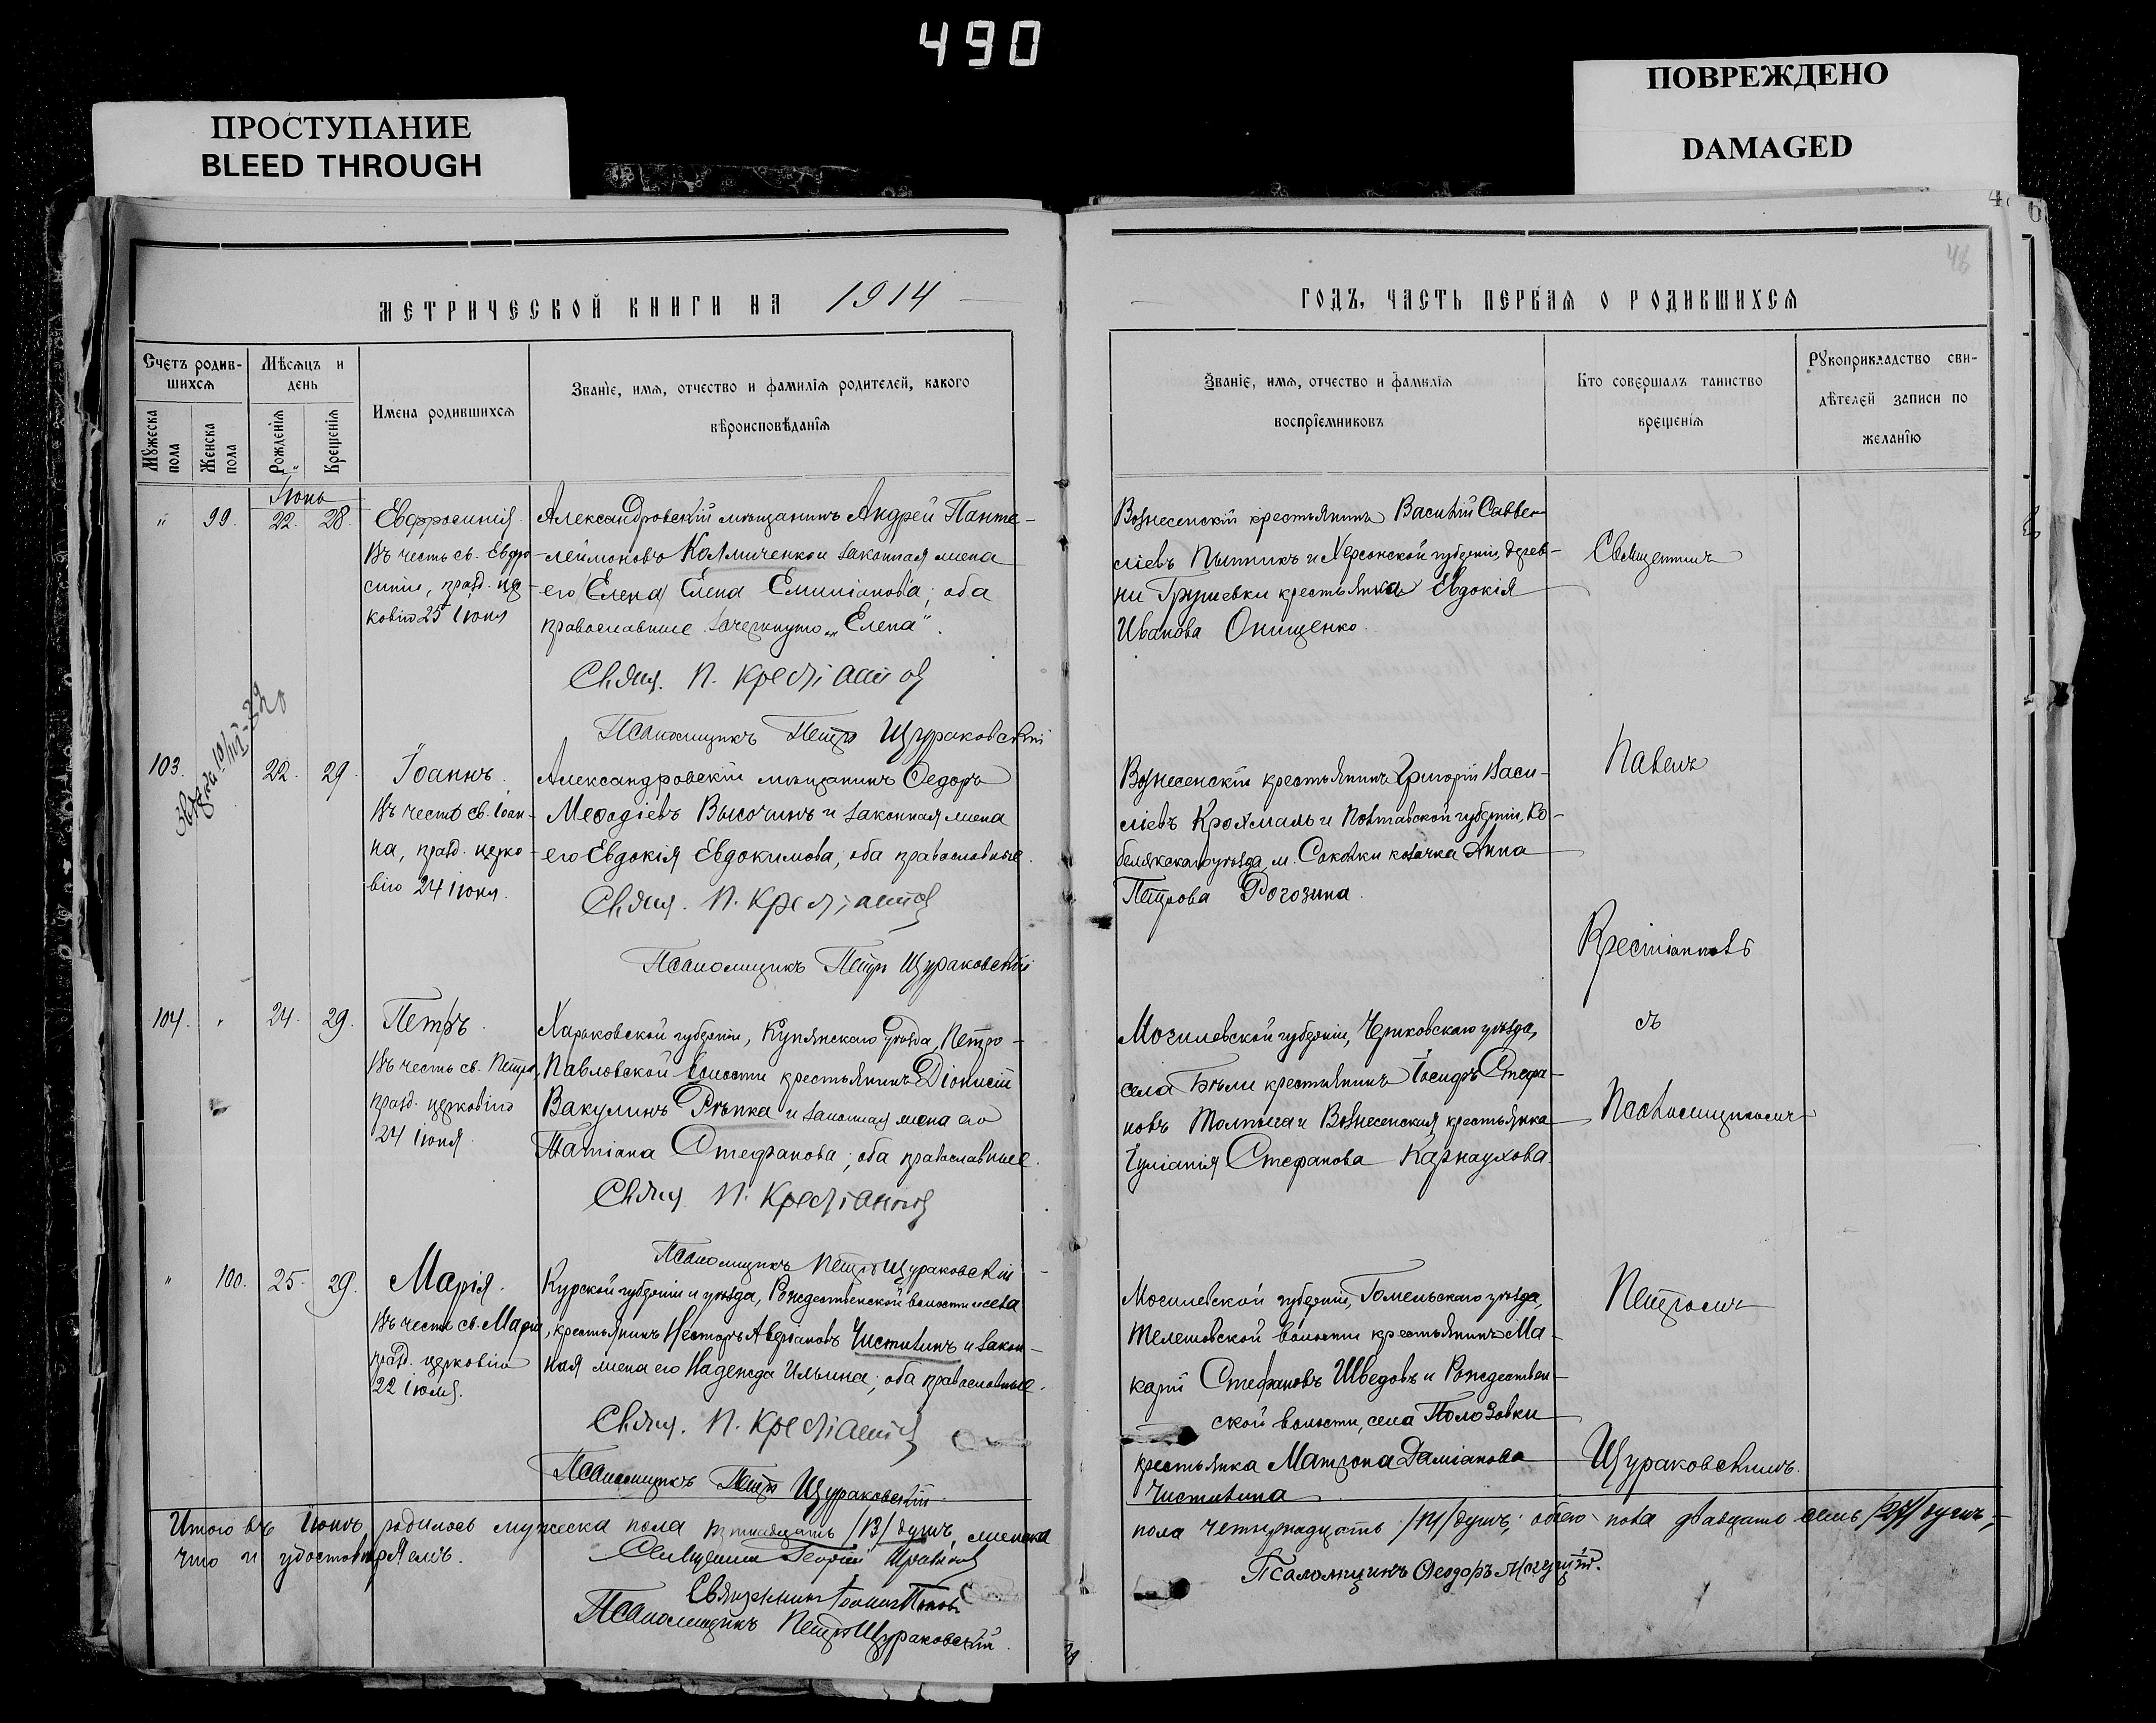 490
ПРОСТУПАНИЕ
BLEED THROUGH
ПОВРЕЖДЕНО
DAMAGED
46
МЕТРИЧЕСКОЙ КНИГИ НА 1914
Счетъ родив-
шихся
Мѣсяцъ и
день
Мужеска
пола
Женска
пола
Рожденія
Крещенія
Имена родившихся
Званіе, имя, отчество и фамилія родителей, какого
вѣроисповѣданія
Іюнь
" 99. 22. 28.
Евфросинія.
Въ честь св. Евфро
синіи, празд. цер
ковію 25 Іюня
Александровскій мѣщанинъ Андрей Панте-
-леймоновъ Калниченко и законная жена
его (Елена) Елена Емиліанова; оба
православные. Зачеркнуто „Елена".
Свящ. П. Крестіанов
Псаломщикъ Петръ Щураковскій
103. 22. 29.
Іоаннъ.
Въ честь св. Іоан-
на, празд. церко-
вію 24 Іюня.
Александровскій мѣщанинъ Ѳедоръ
Меѳодіевъ Высочинъ и законная жена
его Евдокія Евдокимова; оба православные.
Свящ. П. Крестіанов
Псаломщикъ Петръ Щураковскій
104. " 24. 29.
Петръ.
Въ честь св. Петра,
празд. церковію
24 Іюня.
Харьковской губерніи, Купянскаго уѣзда, Петро-
Павловской волости крестьянинъ Діонисій
Вакулинъ Рѣпка и законная жена его
Татіана Стефанова; оба православные.
Свящ. П. Крестіанов
Псаломщикъ Петръ Щураковскій
" 100. 25. 29.
Марія.
Въ честь св. Маріи,
празд. церковію
22 Іюля.
Курской губерніи и уѣзда, Рождественской волости и села
крестьянинъ Несторъ Аверіановъ Чистилинъ и закон-
ная жена его Надежда Ильина; оба православные.
Свящ. П. Крестіанов
Псаломщикъ Петръ Щураковскій
Итого въ Іюнѣ родилось мужеска пола тринадцать /13/ душъ, женска
что и удостовѣряемъ.
Священникъ Георгій
Священникъ Іоаннъ Поповъ
Псаломщикъ Петръ Щураковскій.
ГОДЪ, ЧАСТЬ ПЕРВАЯ О РОДИВШИХСЯ
Званіе, имя, отчество и фамилія
воспріемниковъ
Кто совершалъ таинство
крещенія
Рукоприкладство сви-
дѣтелей записи по
желанію
Вознесенскій крестьянинъ Василій Савве-
ліевъ Пынникъ и Херсонской губерніи, дерев-
ни Грушевки крестьянка Евдокія
Иванова Онищенко.
Вознесенскій крестьянинъ Григорій Васи-
ліевъ Крохмаль и Полтавской губерніи, Ко-
белякскаго уѣзда, м. Соколки козачка Анна
Петрова Рогозина.
Могилевской губерніи, Чериковскаго уѣзда,
села крестьянинъ Іосифъ Стефа-
новъ и Вознесенская крестьянка
Іуліанія Стефанова Карнаухова.
Могилевской губерніи, Гомельскаго уѣзда,
Телешовской волости крестьянинъ Ма-
карій Стефановъ Шведовъ и Рождествен-
ской волости, села Полозовки
крестьянка Матрона Даміанова
Чистилина
Священникъ
Павелъ
Крестіановъ
съ
Псаломщикомъ
Петромъ
Щураковскимъ.
пола четырнадцать /14/ душъ; обоего пола двадцать семь /27/ душъ,-
Псаломщикъ Ѳеодоръ